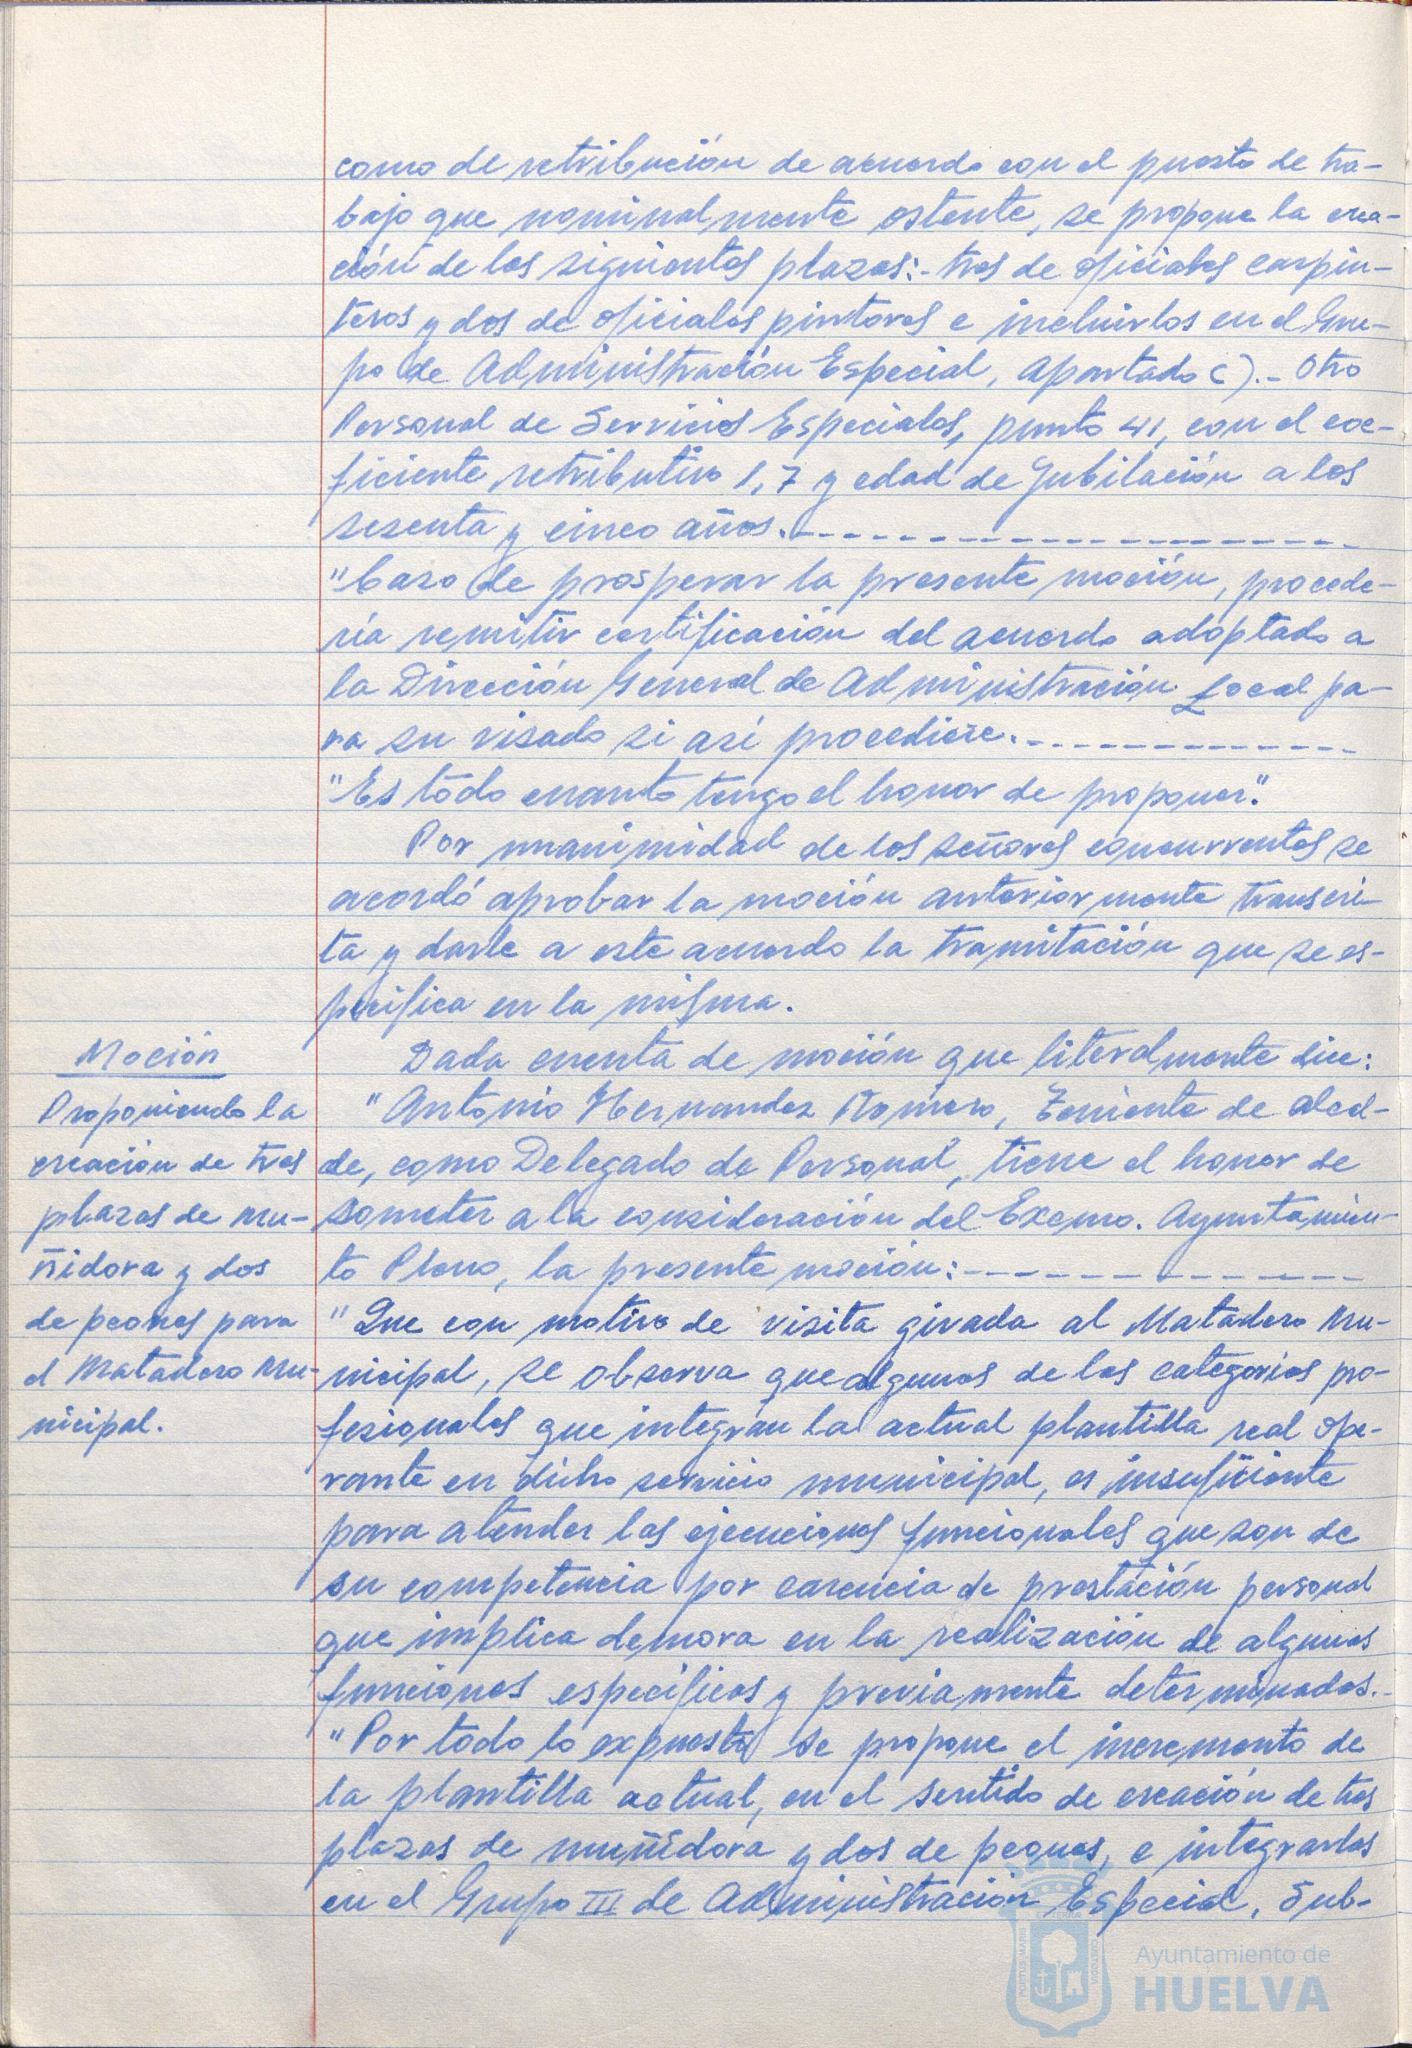 como de retribución de acuerdo con el puesto de tra-
bajo que nominalmente ostente, se propone la crea-
ción de las siguientes plazas:- tres de oficiales carpin-
teros y dos de oficiales pintores e incluirlos en el Gru-
po de Administración Especial, apartado c).- Otro
Personal de Servicios Especiales, punto 41, con el coe-
ficiente retributivo 1,7 y edad de jubilación a los
sesenta y cinco años.
"Caso de prosperar la presente moción, procede-
ría remitir certificación del acuerdo adoptado a
la Dirección General de Administración Local pa-
ra su visado si así procediere.
"Es todo cuanto tengo el honor de proponer".
Por unanimidad de los señores concurrentes se
acordó aprobar la moción anteriormente transcri-
ta y darle a este acuerdo la tramitación que se es-
pecifica en la misma.
Moción
Proponiendo la
creación de tres
plazas de mu-
ñidora y dos
de peones para
el Matadero Mu-
nicipal.
Dada cuenta de moción que literalmente dice:
"Antonio Hernandez Romero, Teniente de alcal-
de, como Delegado de Personal, tiene el honor de
someter a la consideración del Excmo. Ayuntamien-
to Pleno, la presente moción:
"Que con motivo de visita girada al Matadero Mu-
nicipal, se observa que algunas de las categorías pro-
fesionales que integran la actual plantilla real ope-
rante en dicho servicio municipal, es insuficiente
para atender las ejecuciones funcionales que son de
su competencia por carencia de prestación personal
que implica demora en la realización de algunas
funciones específicas y previamente determinadas.-
"Por todo lo expuesto se propone el incremento de
la plantilla actual, en el sentido de creación de tres
plazas de muñidora y dos de peones, e integrarlas
en el Grupo III de Administración Especial, Sub-
Ayuntamiento de
HUELVA